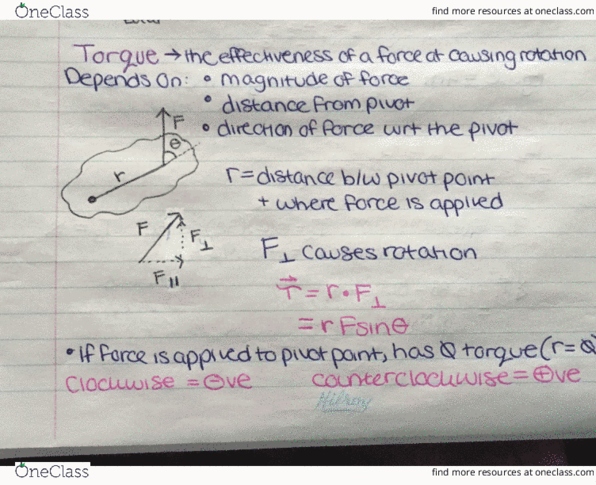 OneClass
find more resources at oneclass.com
Torque → the effectiveness of a force at causing rotation
Depends on: • magnitude of force
• distance from pivot
• direction of force wrt the pivot
F
θ
r
r = distance b/w pivot point
+ where force is applied
F
F⊥
F||
F⊥ causes rotation
τ⃗ = r · F⊥
= r Fsinθ
• If force is applied to pivot point, has 0 torque (r = 0
Clockwise = ⊖ve
counterclockwise = ⊕ve
Hilroy
OneClass
find more resources at oneclass.com